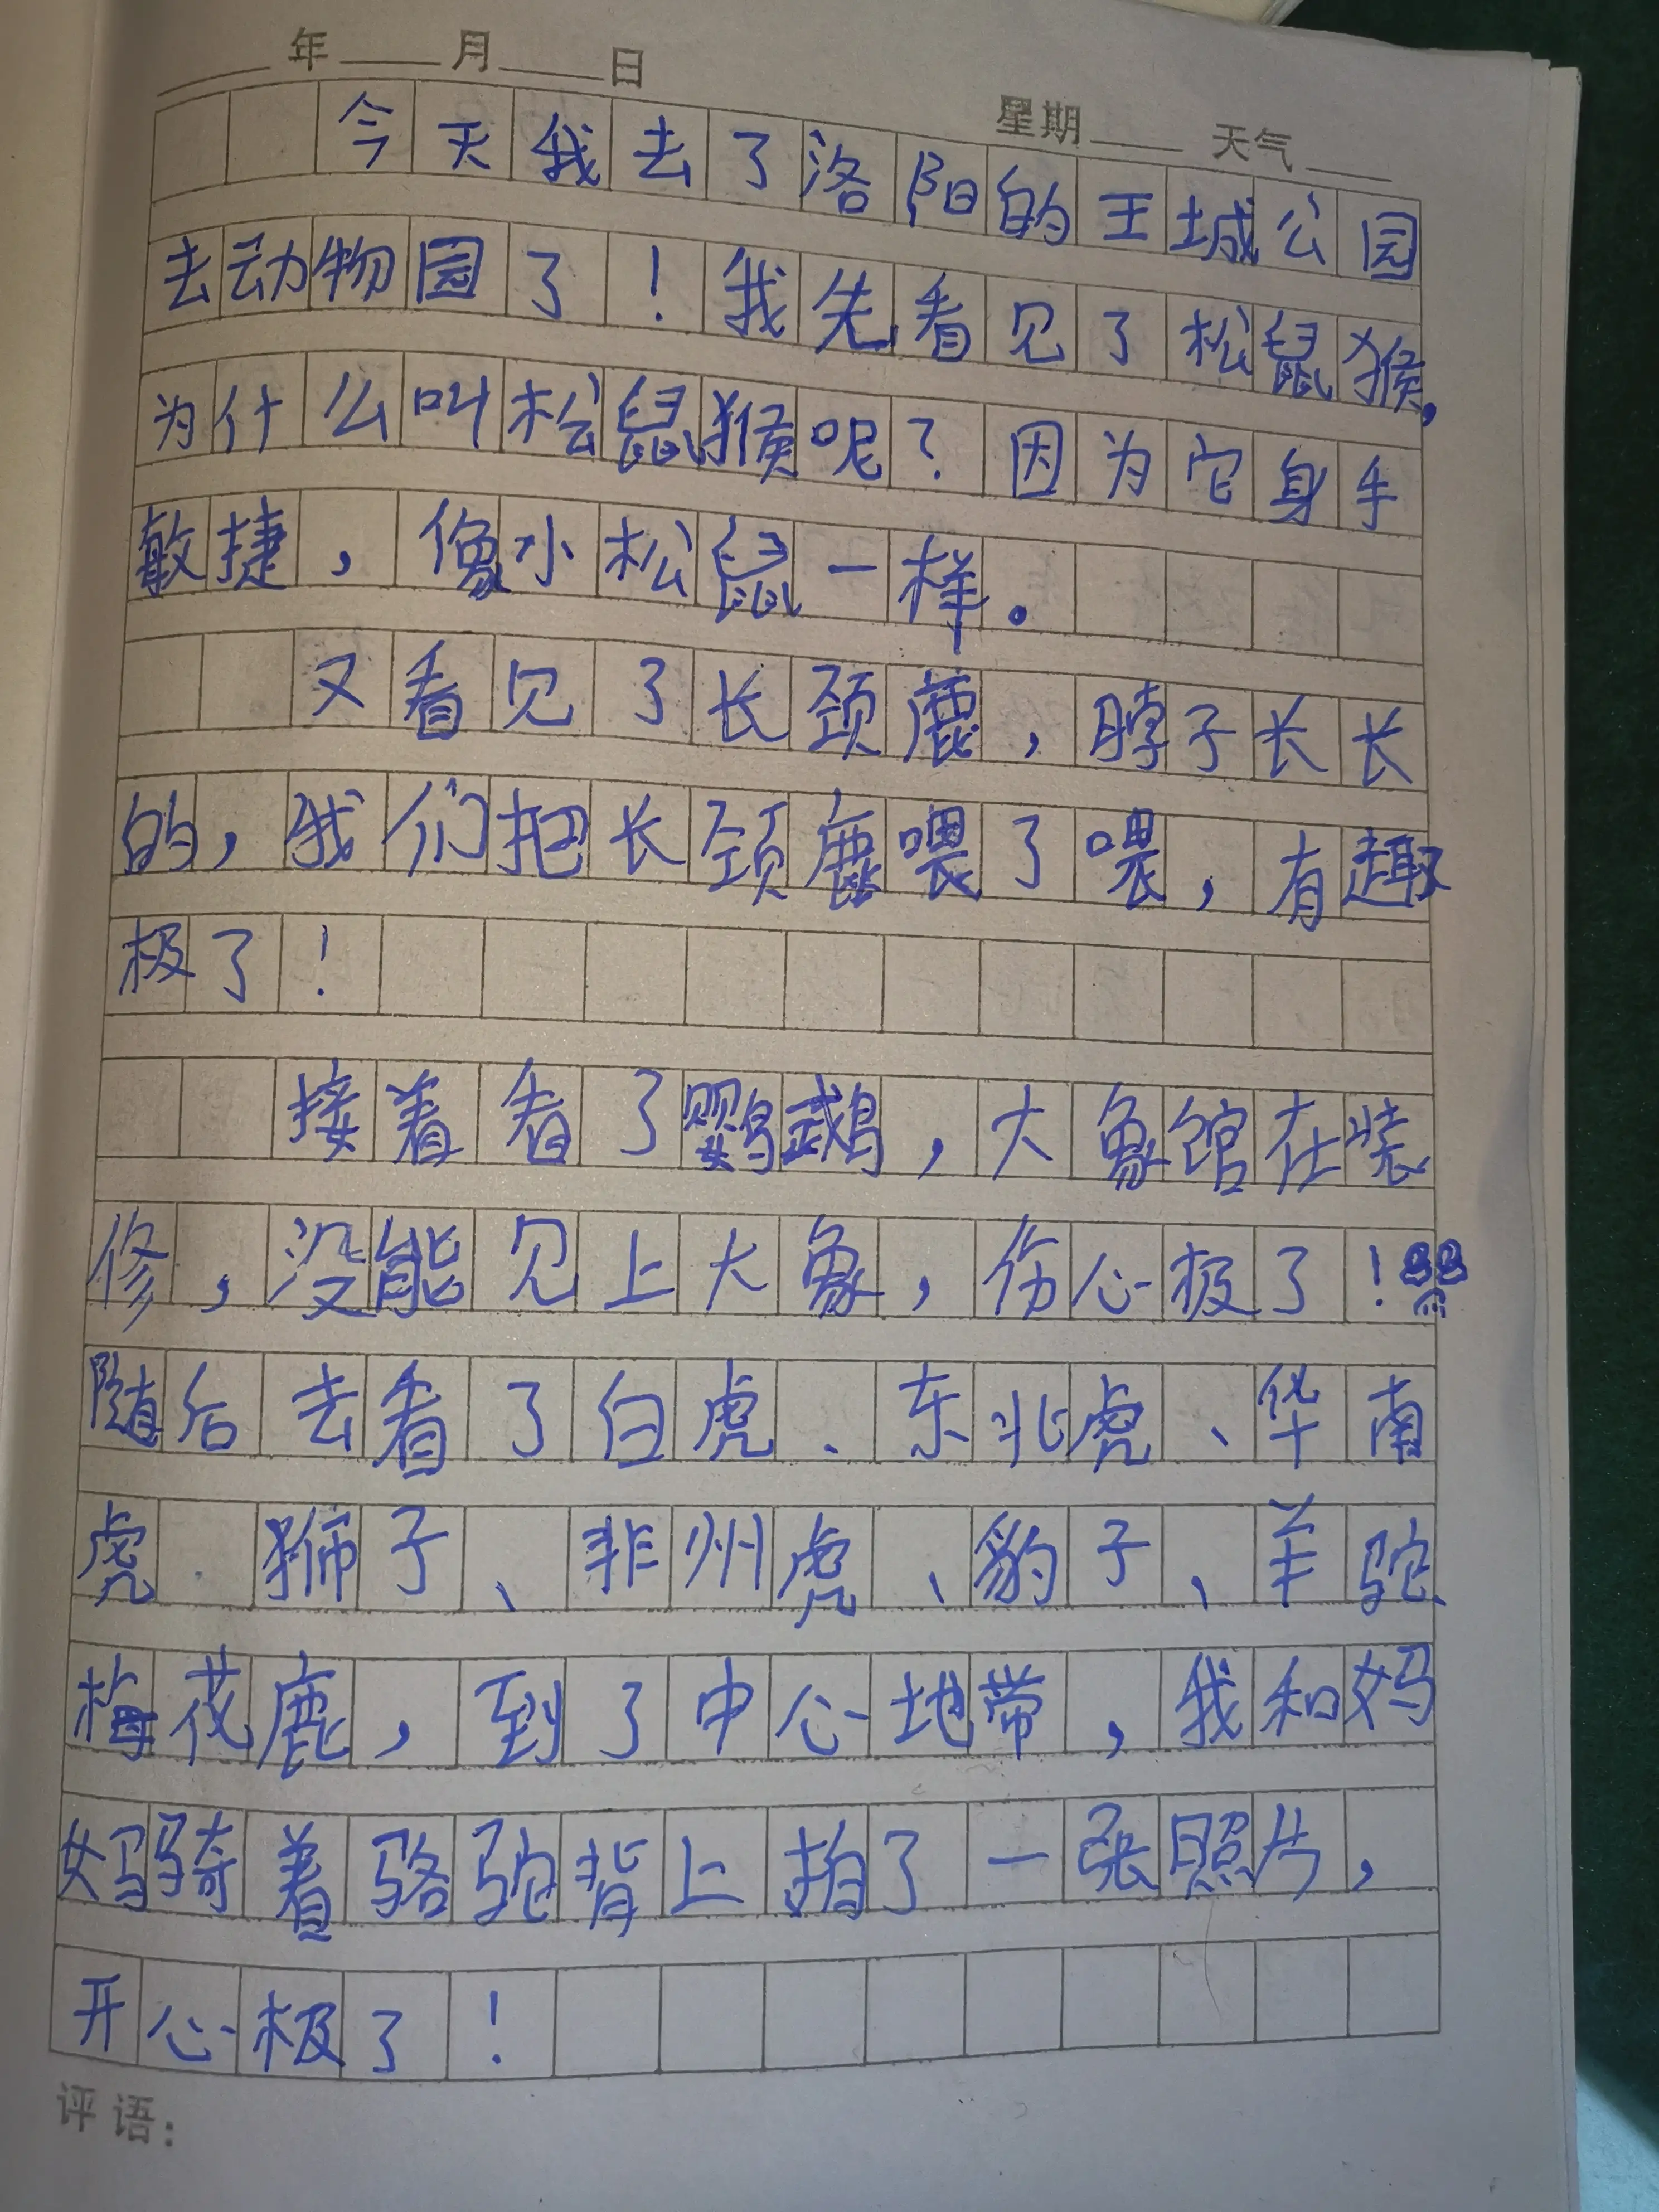 年 月 日
星期 天气
今天我去了洛阳的王城公园
去动物园了！我先看见了松鼠猴，
为什么叫松鼠猴呢？因为它身手
敏捷，像小松鼠一样。
又看见了长颈鹿，脖子长长
的，我们把长颈鹿喂了喂，有趣
极了！
接着看了鹦鹉，大象馆在装
修，没能见上大象，伤心极了！
随后去看了白虎、东北虎、华南
虎、狮子、非州虎、豹子、羊驼、
梅花鹿，到了中心地带，我和妈
妈骑着骆驼背上拍了一张照片，
开心极了！
评语：